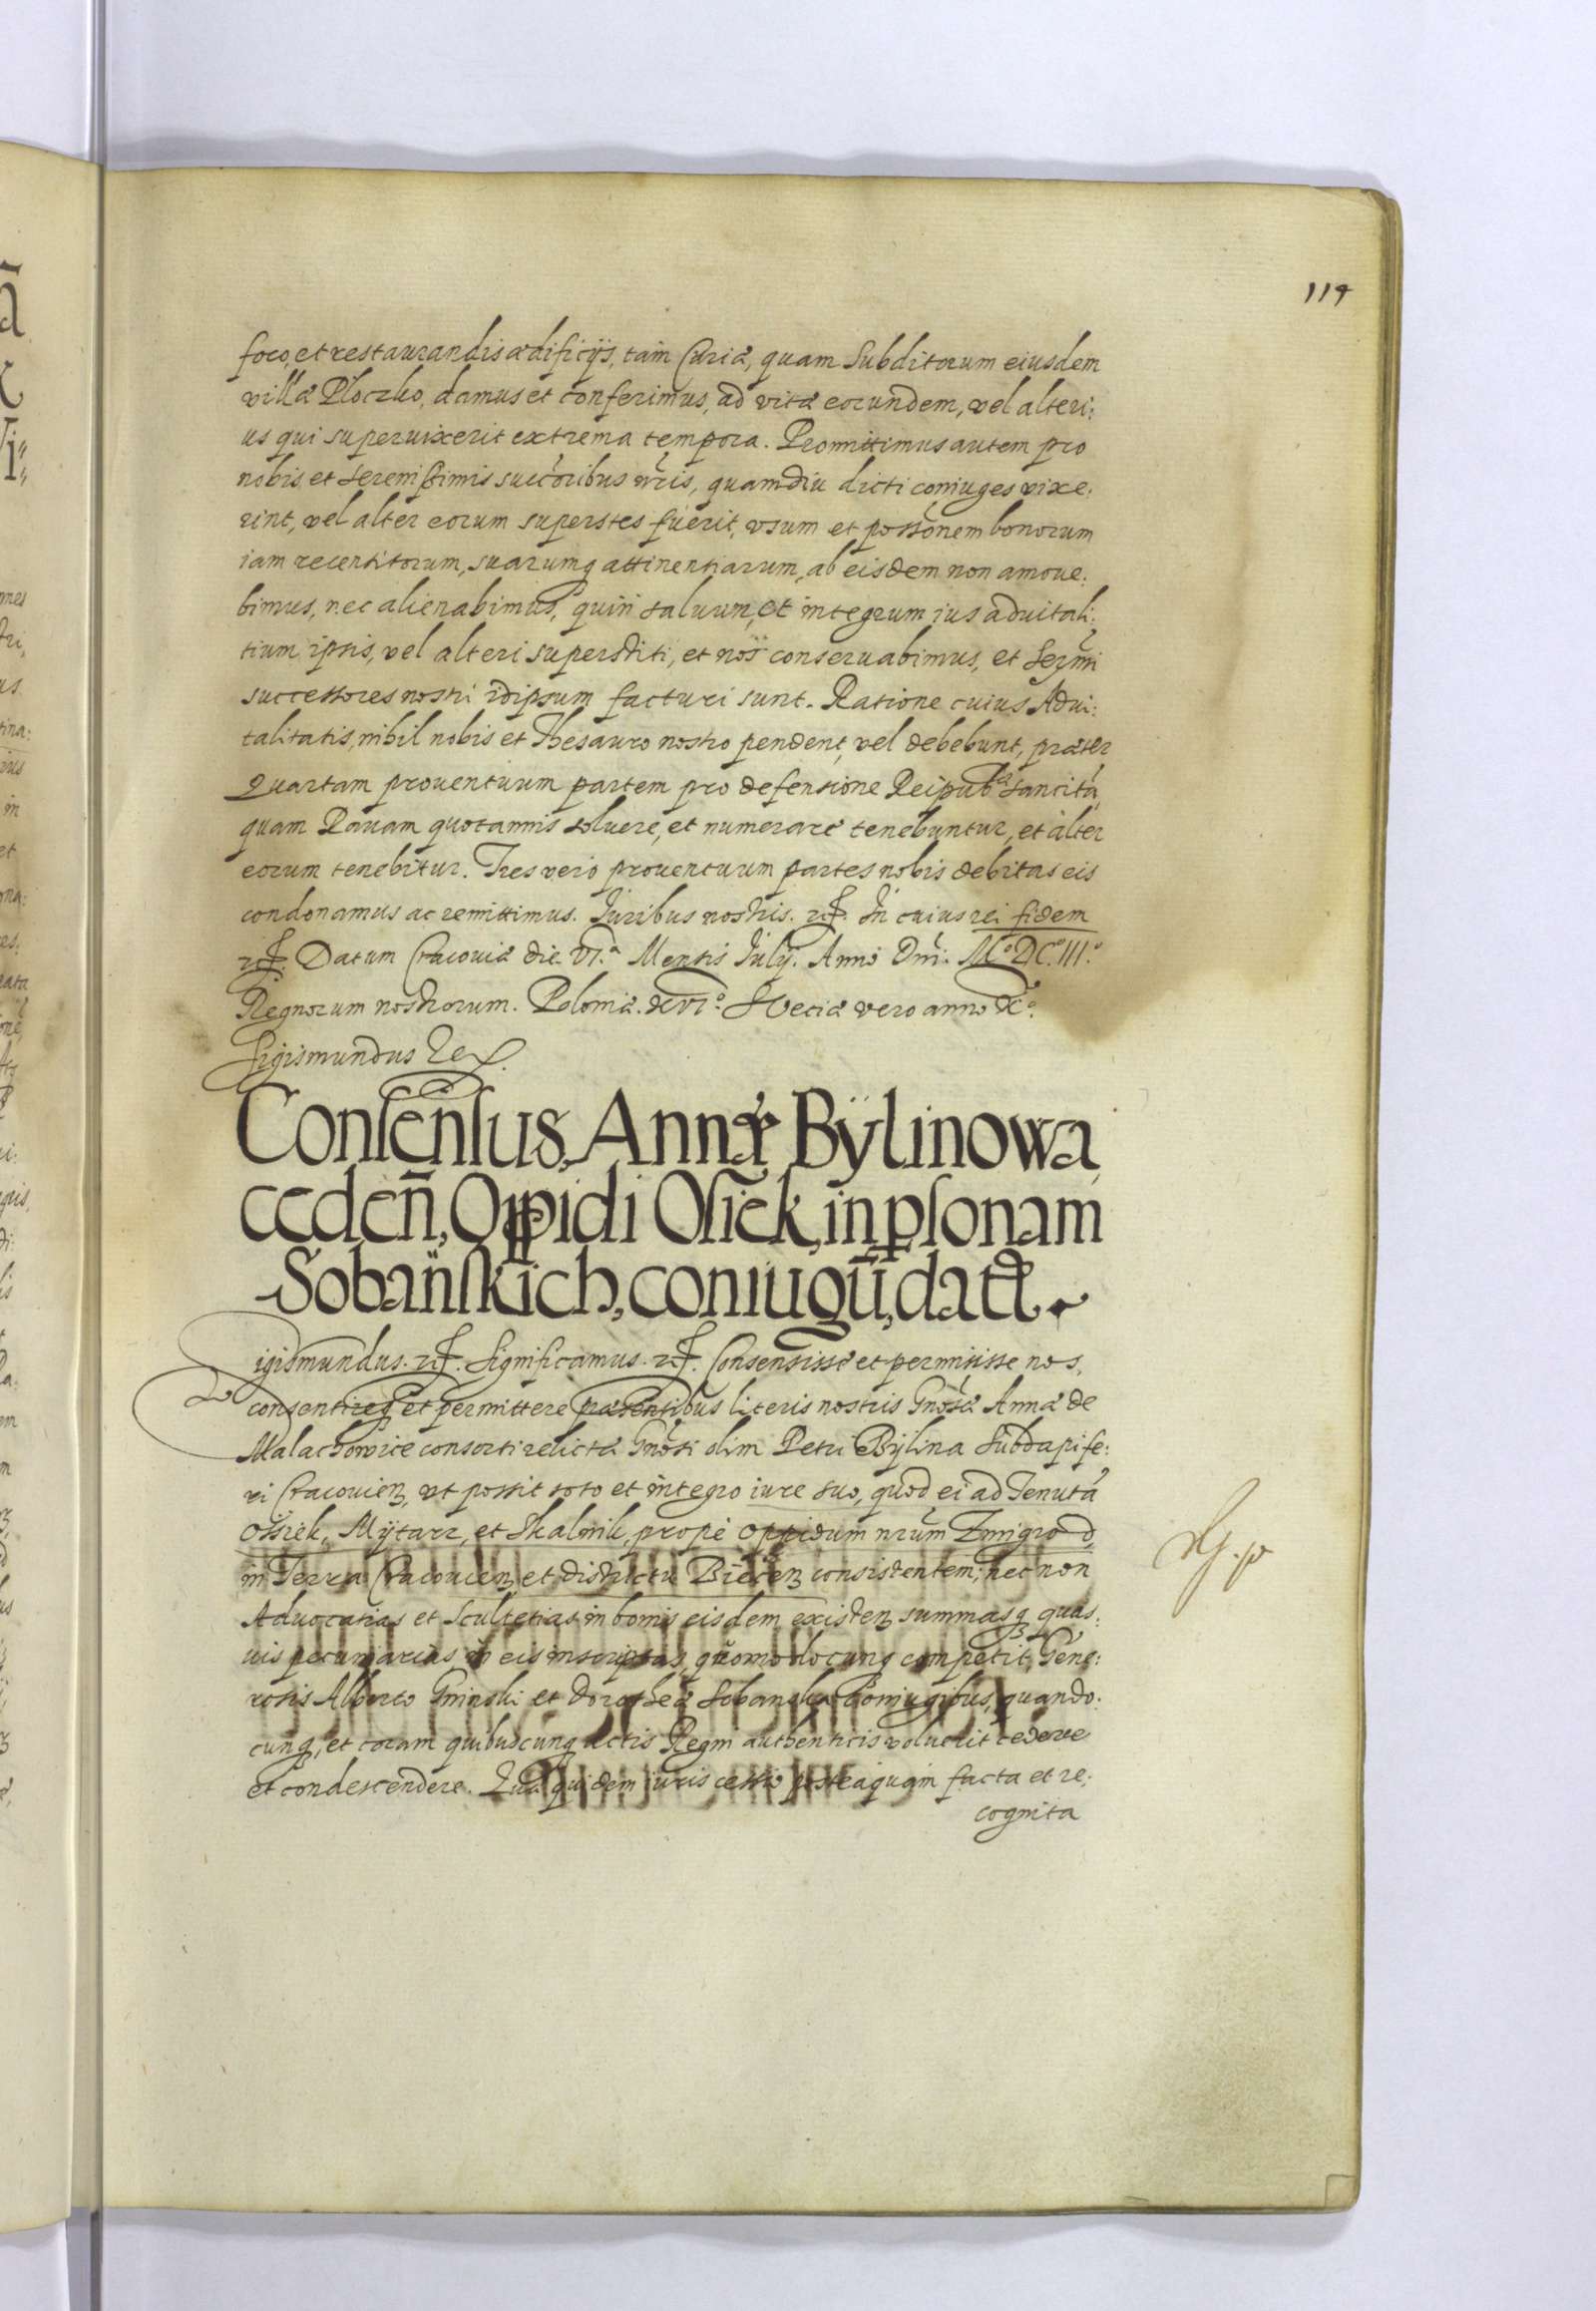 119
foco, et restaurandis ædificijs, tam Curiæ, quam Subditorum eiusdem
villæ Ploczko, damus et conferimus, ad vitæ eorundem, vel alteri:
us qui superuixerit extrema tempora. Promittimus autem pro
nobis et serenissimis succoribus nris, quamdiu dicti coniuges vixe:
rint, vel alter eorum superstes fuerit, vsum et possonem bonorum
iam recensitorum, suarumq attinentiarum, ab eisdem non amoue:
bimus, nec alienabimus, quin saluum, et integrum ius aduitali:
tium ipsis, vel alteri superstiti, et nos conseruabimus, et Sermi
successores nostri idipsum facturi sunt. Ratione cuius Adui:
talitatis, nihil nobis et Thesauro nostro pendent, vel debebunt, præter
Quartam prouentuum partem pro defensione Reipub sancitã,
quam Rauam quotannis soluere, et numerare tenebuntur, et alter
eorum tenebitur. Tres vero prouentuum partes nobis debitas eis
condonamus ac remittimus. Iuribus nostris. etc. In cuius rei fidem
etc. Datum Cracouiæ die VI.a Mensis Iulij. Anno Dni. Mo DCo IIIo
Regnorum nostrorum. Poloniæ. XVIo. Sueciæ vero anno Xo.
Sigismundus Rex.
Consensus, Annæ Bÿlinowa
ceden̄, Oppidi Osiek, in psonam
Sobańskich, coniugū, dat̃
Sigismundus. etc. Significamus. etc. Consensisse et permisisse nos,
consentireq et permittere præsentibus literis nostris Gnosæ Annæ de
Malachowice consorti relictæ Gnosi olim Petri Bÿlina Subdapife:
ri Cracouien, vt possit toto et integro iure suo, quod ei ad Tenutã
Ossiek, Mÿtarz, et Skalnik, prope oppidum nrum Zmigrod,
in Terra Cracouien, et districtu Biecen consistentem, nec non
Aduocatias et Scultetias in bonis eisdem existen, summasq quas:
uis pecuniarias in eis inscriptas, quomodocunq competit, Gene:
rosis Alberto Gninski et Dorotheæ Sobanska Coniugibus, quando:
cunq, et coram quibuscunq actis Regni authenticis voluerit cedere
et condescendere. Quæ quidem iuris cessio posteaquam facta et re:
cognita